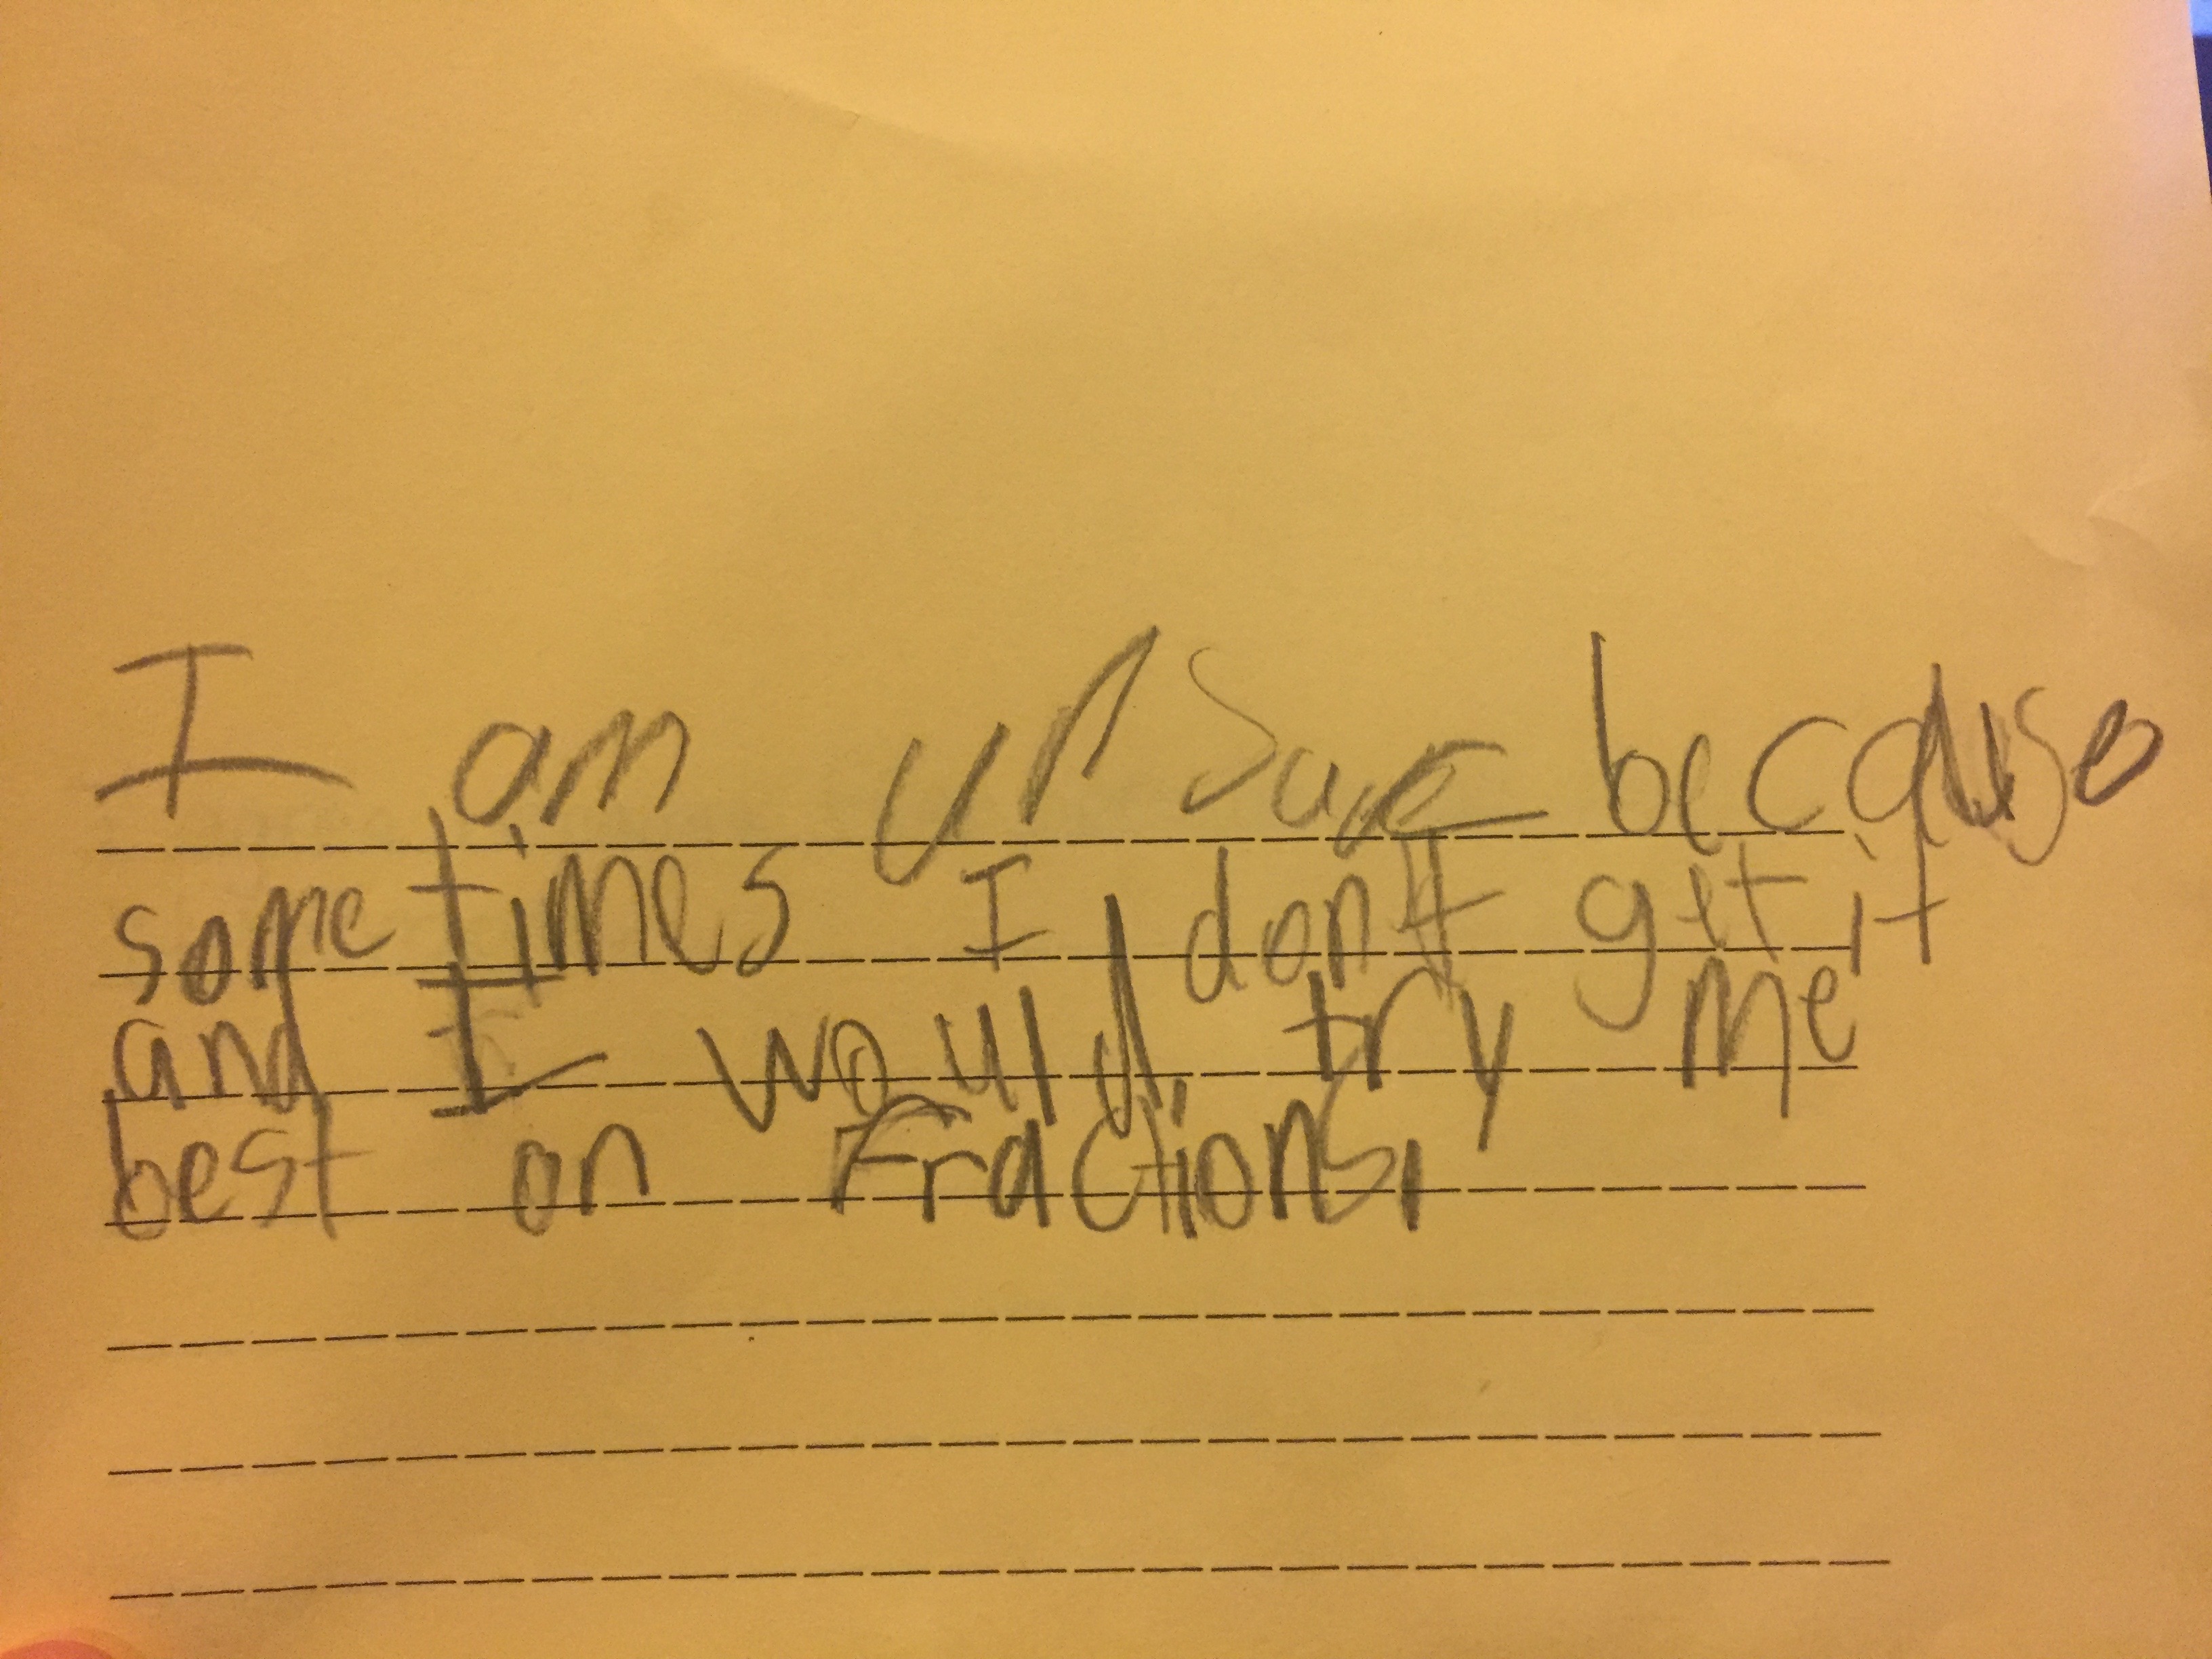 I am unsure because
sometimes I don't get it
and I would try me
best on Fractions.